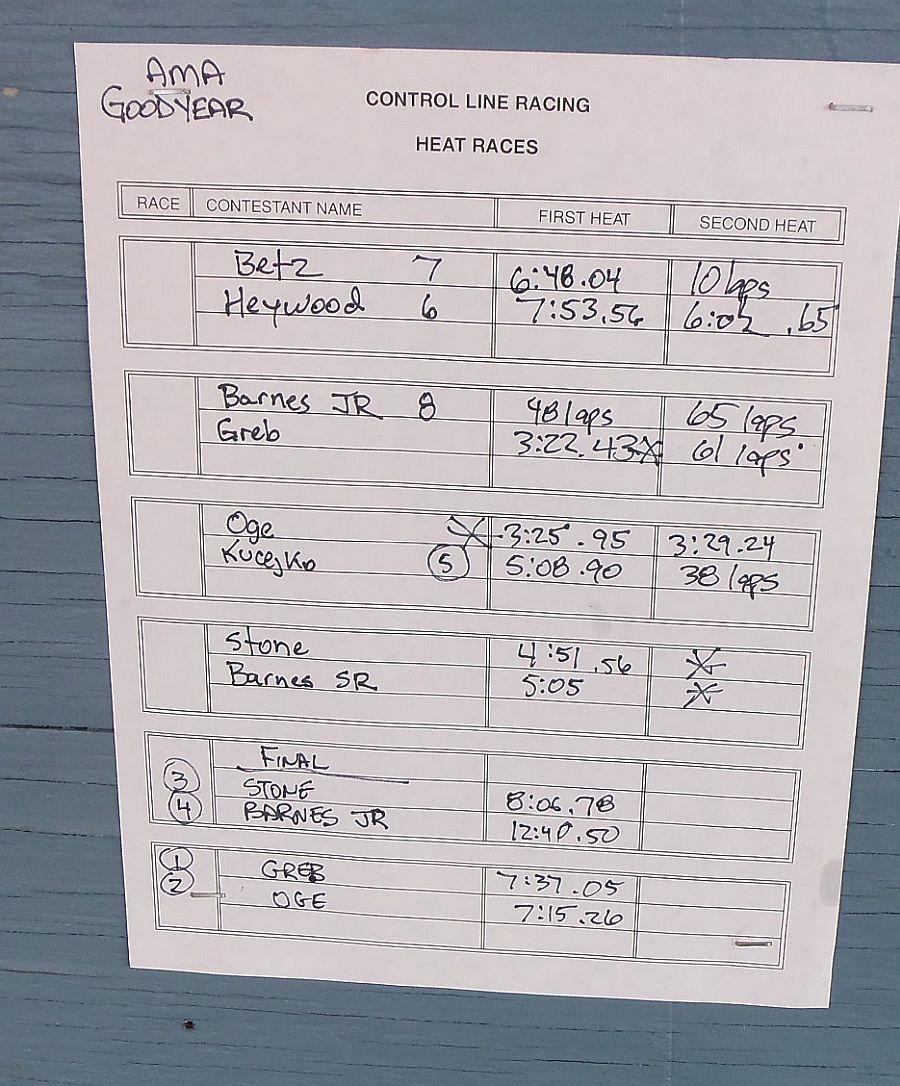 AMA
GOODYEAR
CONTROL LINE RACING
HEAT RACES
RACE CONTESTANT NAME FIRST HEAT SECOND HEAT
Betz 7 6:48.04 10 laps
Heywood 6 7:53.56 6:02 .65
Barnes JR 8 48 laps 65 laps
Greb 3:22.43 61 laps
Oge 3:25.95 3:29.24
Kucejko 5 5:08.90 38 laps
Stone 4:51.56
Barnes SR 5:05
FINAL
3 STONE 8:06.78
4 BARNES JR 12:40.50
1 GREB 7:37.05
2 OGE 7:15.26